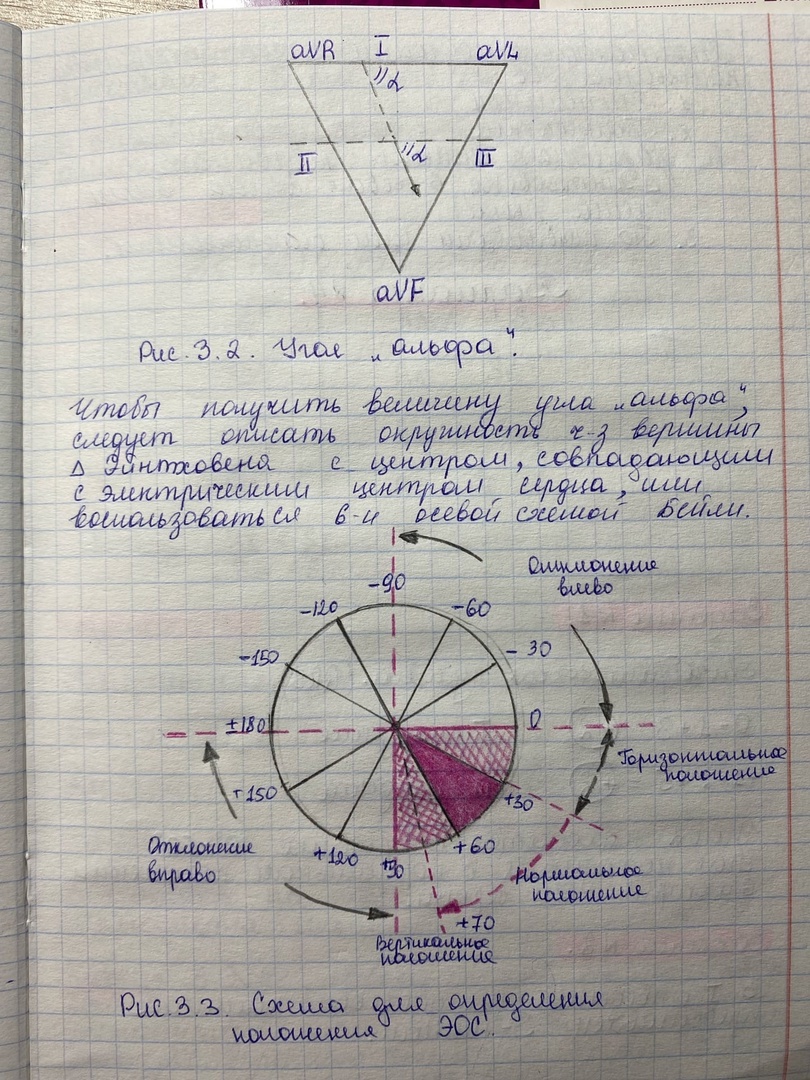 aVR I aVL
α
II α III
aVF
Рис. 3.2. Угол „альфа".
Чтобы получить величину угла „альфа",
следует описать окружность ч-з вершины
Δ Эйнтховена с центром, совпадающим
с электрическим центром сердца, или
воспользоваться 6-и осевой схемой Бейли.
Отклонение
влево
-90
-120 -60
-150 - 30
±180 0
Горизонтальное
положение
+150 +30
+120 +90 +60
Отклонение
вправо
Нормальное
положение
+70
Вертикальное
положение
Рис. 3.3. Схема для определения
положения ЭОС.